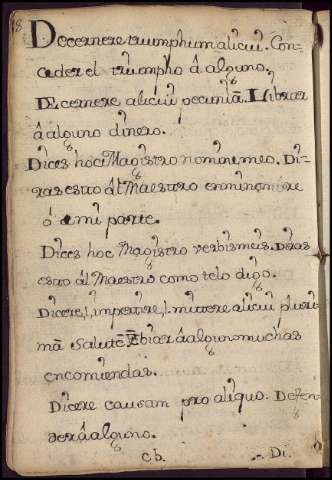 18
Decernere triumphum alicui. Con-
ceder el triumpho â alguno.
Decernere alicui pecuniã. Librar
â alguno dinero.
Dices hoc Magistro nomine meo. Di-
ras esto ál Maestro en mi nõbre
ó de mi parte.
Dices hoc Magistro verbis meis. Diras
esto ál Maestro como telo digo.
Dicere, l, impertire, l, mittere alicui pluri-
mã Salutẽ. Ẽbiar â alguno muchas
encomiendas.
Dicere causam pro aliquo. Defen-
der â alguno.
Di.